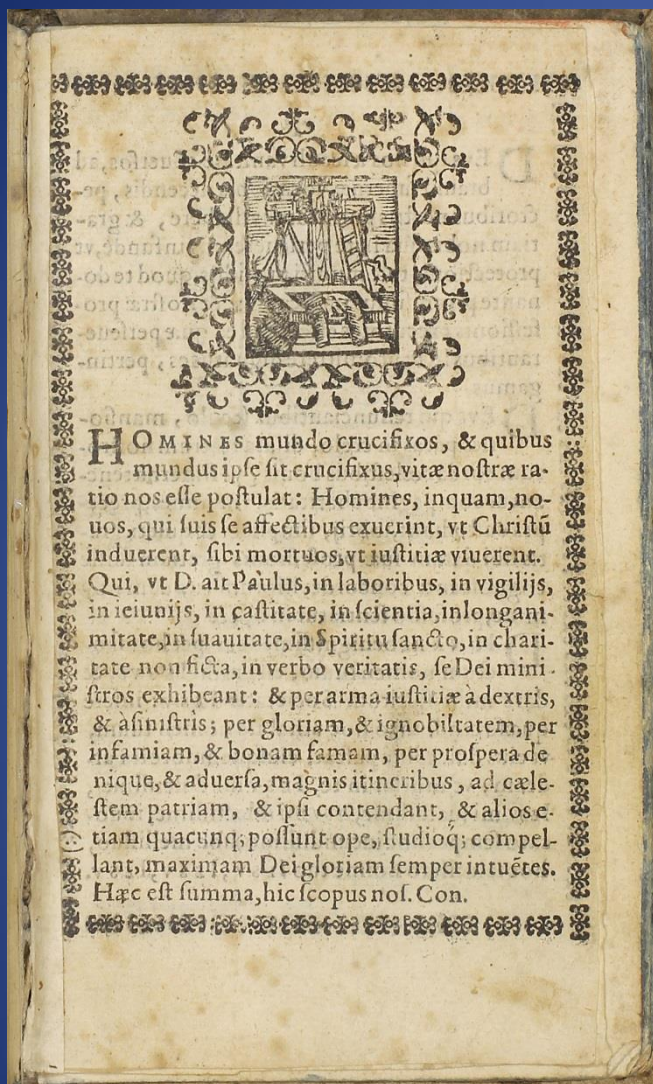 HOMINES mundo crucifixos, & quibus
mundus ipse sit crucifixus, vitæ nostræ ra-
tio nos esse postulat: Homines, inquam, no-
uos, qui suis se affectibus exuerint, vt Christū
induerent, sibi mortuos, vt iustitiæ viuerent.
Qui, vt D. ait Paulus, in laboribus, in vigilijs,
in ieiunijs, in castitate, in scientia, in longani-
mitate, in suauitate, in Spiritu sancto, in chari-
tate non ficta, in verbo veritatis, se Dei mini-
stros exhibeant: & per arma iustitiæ à dextris,
& à sinistris; per gloriam, & ignobilitatem, per
infamiam, & bonam famam, per prospera de
nique, & aduersa, magnis itineribus, ad cæle-
stem patriam, & ipsi contendant, & alios e-
tiam quacunq; possunt ope, studioq́; compel-
lant, maximam Dei gloriam semper intuētes.
Hæc est summa, hic scopus nos. Con.